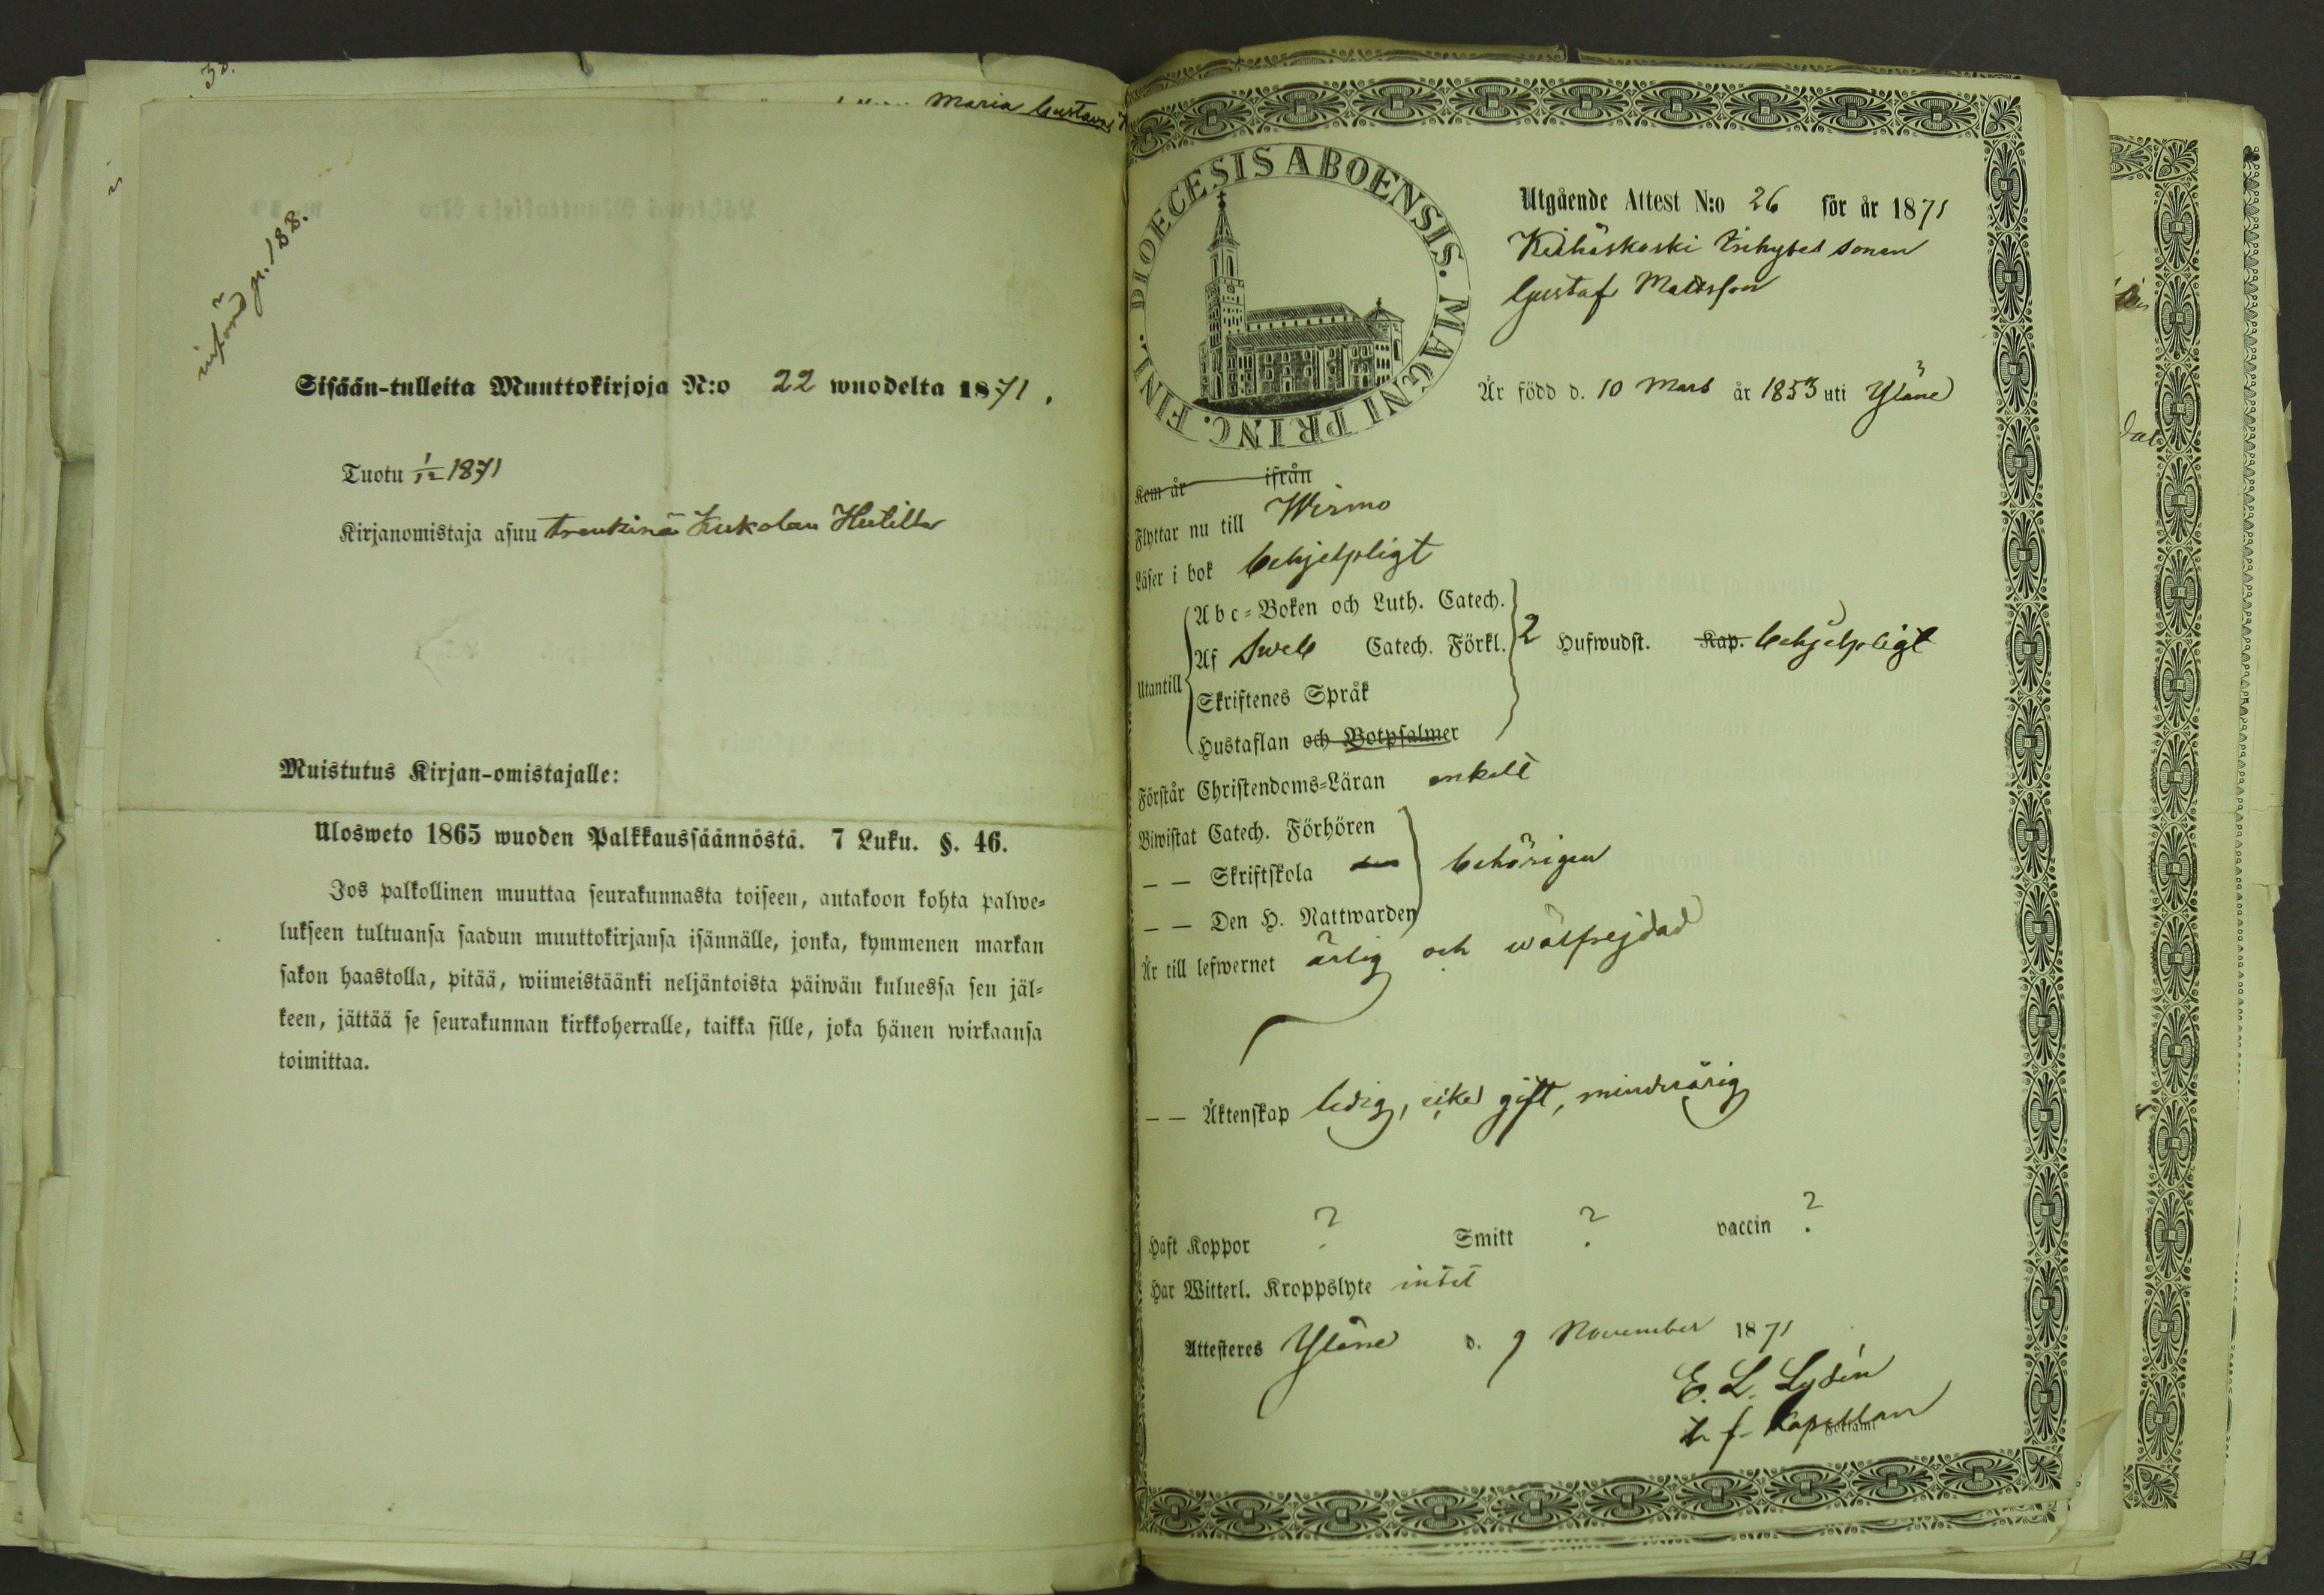 Maria Gustava
införd p. 188.
Sisään-tulleita Muuttokirjoja N:o 22 wuodelta 1871.
Tuotu 1/12 1871
Kirjanomistaja asuu trenkinä
Muistutus Kirjan-omistajalle:
Ulosweto 1865 wuoden Palkkaussäännöstä. 7 Luku. §. 46.
Jos palkollinen muuttaa seurakunnasta toiseen, antakoon kohta palwe=
lukseen tultuansa saadun muuttokirjansa isännälle, jonka, kymmenen markan
sakon haastolla, pitää, wiimeistäänki neljäntoista päiwän kuluessa sen jäl=
keen, jättää se seurakunnan kirkkoherralle, taikka sille, joka hänen wirkaansa
toimittaa.
DIOECESIS ABOENSIS. MAGNI PRINC. FINL.
Utgående Attest N:o 26 för år 1871
sonen
Gustaf Mattsson
Är född d. 10 Mars år 1853 uti Yläne
Kom år ifrån
Flyttar nu till Wirmo
Läser i bok behjelpligt
Abc=Boken och Luth. Catech.
Utantill Af Sweb Catech. Förkl. 2 Hufwudst. Kap. behjelpligt
Skriftenes Språk
Hustaflan och Botpsalmer
Förstår Christendoms=Läran enkelt
Biwistat Catech. Förhören
— — Skriftskola behörigen
— — Den H. Nattwarden
Är till lefwernet ärlig och wälfrejdad
— — Äktenskap ledig, icke gift, minderårig
Haft Koppor ? Smitt ? vaccin ?
Har Witterl. Kroppslyte intet
Attesteres Yläne d. 9 November 1871
E. L. Lydén
t. f. Kapellan